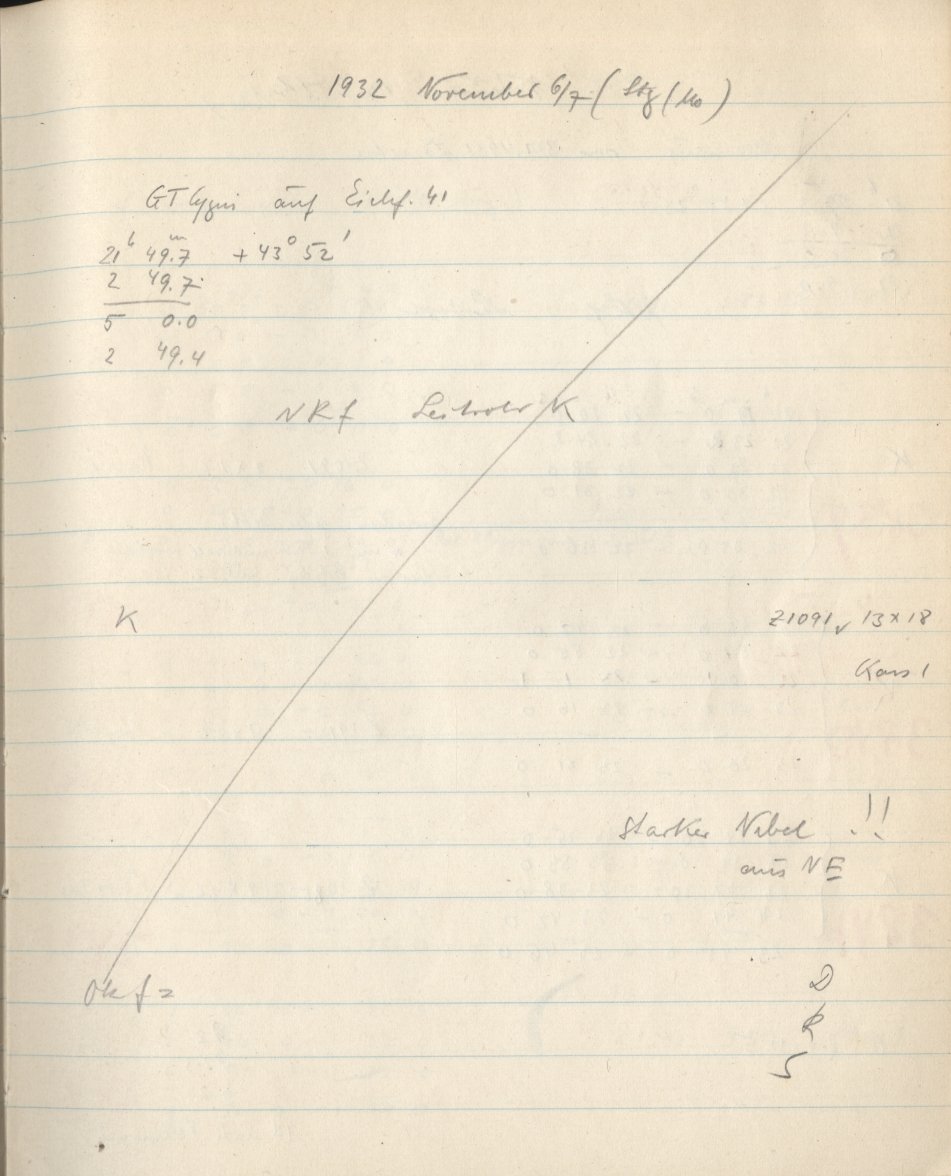 1932 November 6/7 (Stg/Mo)
GT Cygni auf Eichf. 41
21ʰ 49.7ᵐ +43° 52'
2 49.7
5 0.0
2 49.4
NRf Leitrohr K
K
Z1091, 13x18
Starker Nebel !!
aus NE
Okf =
D
R
S